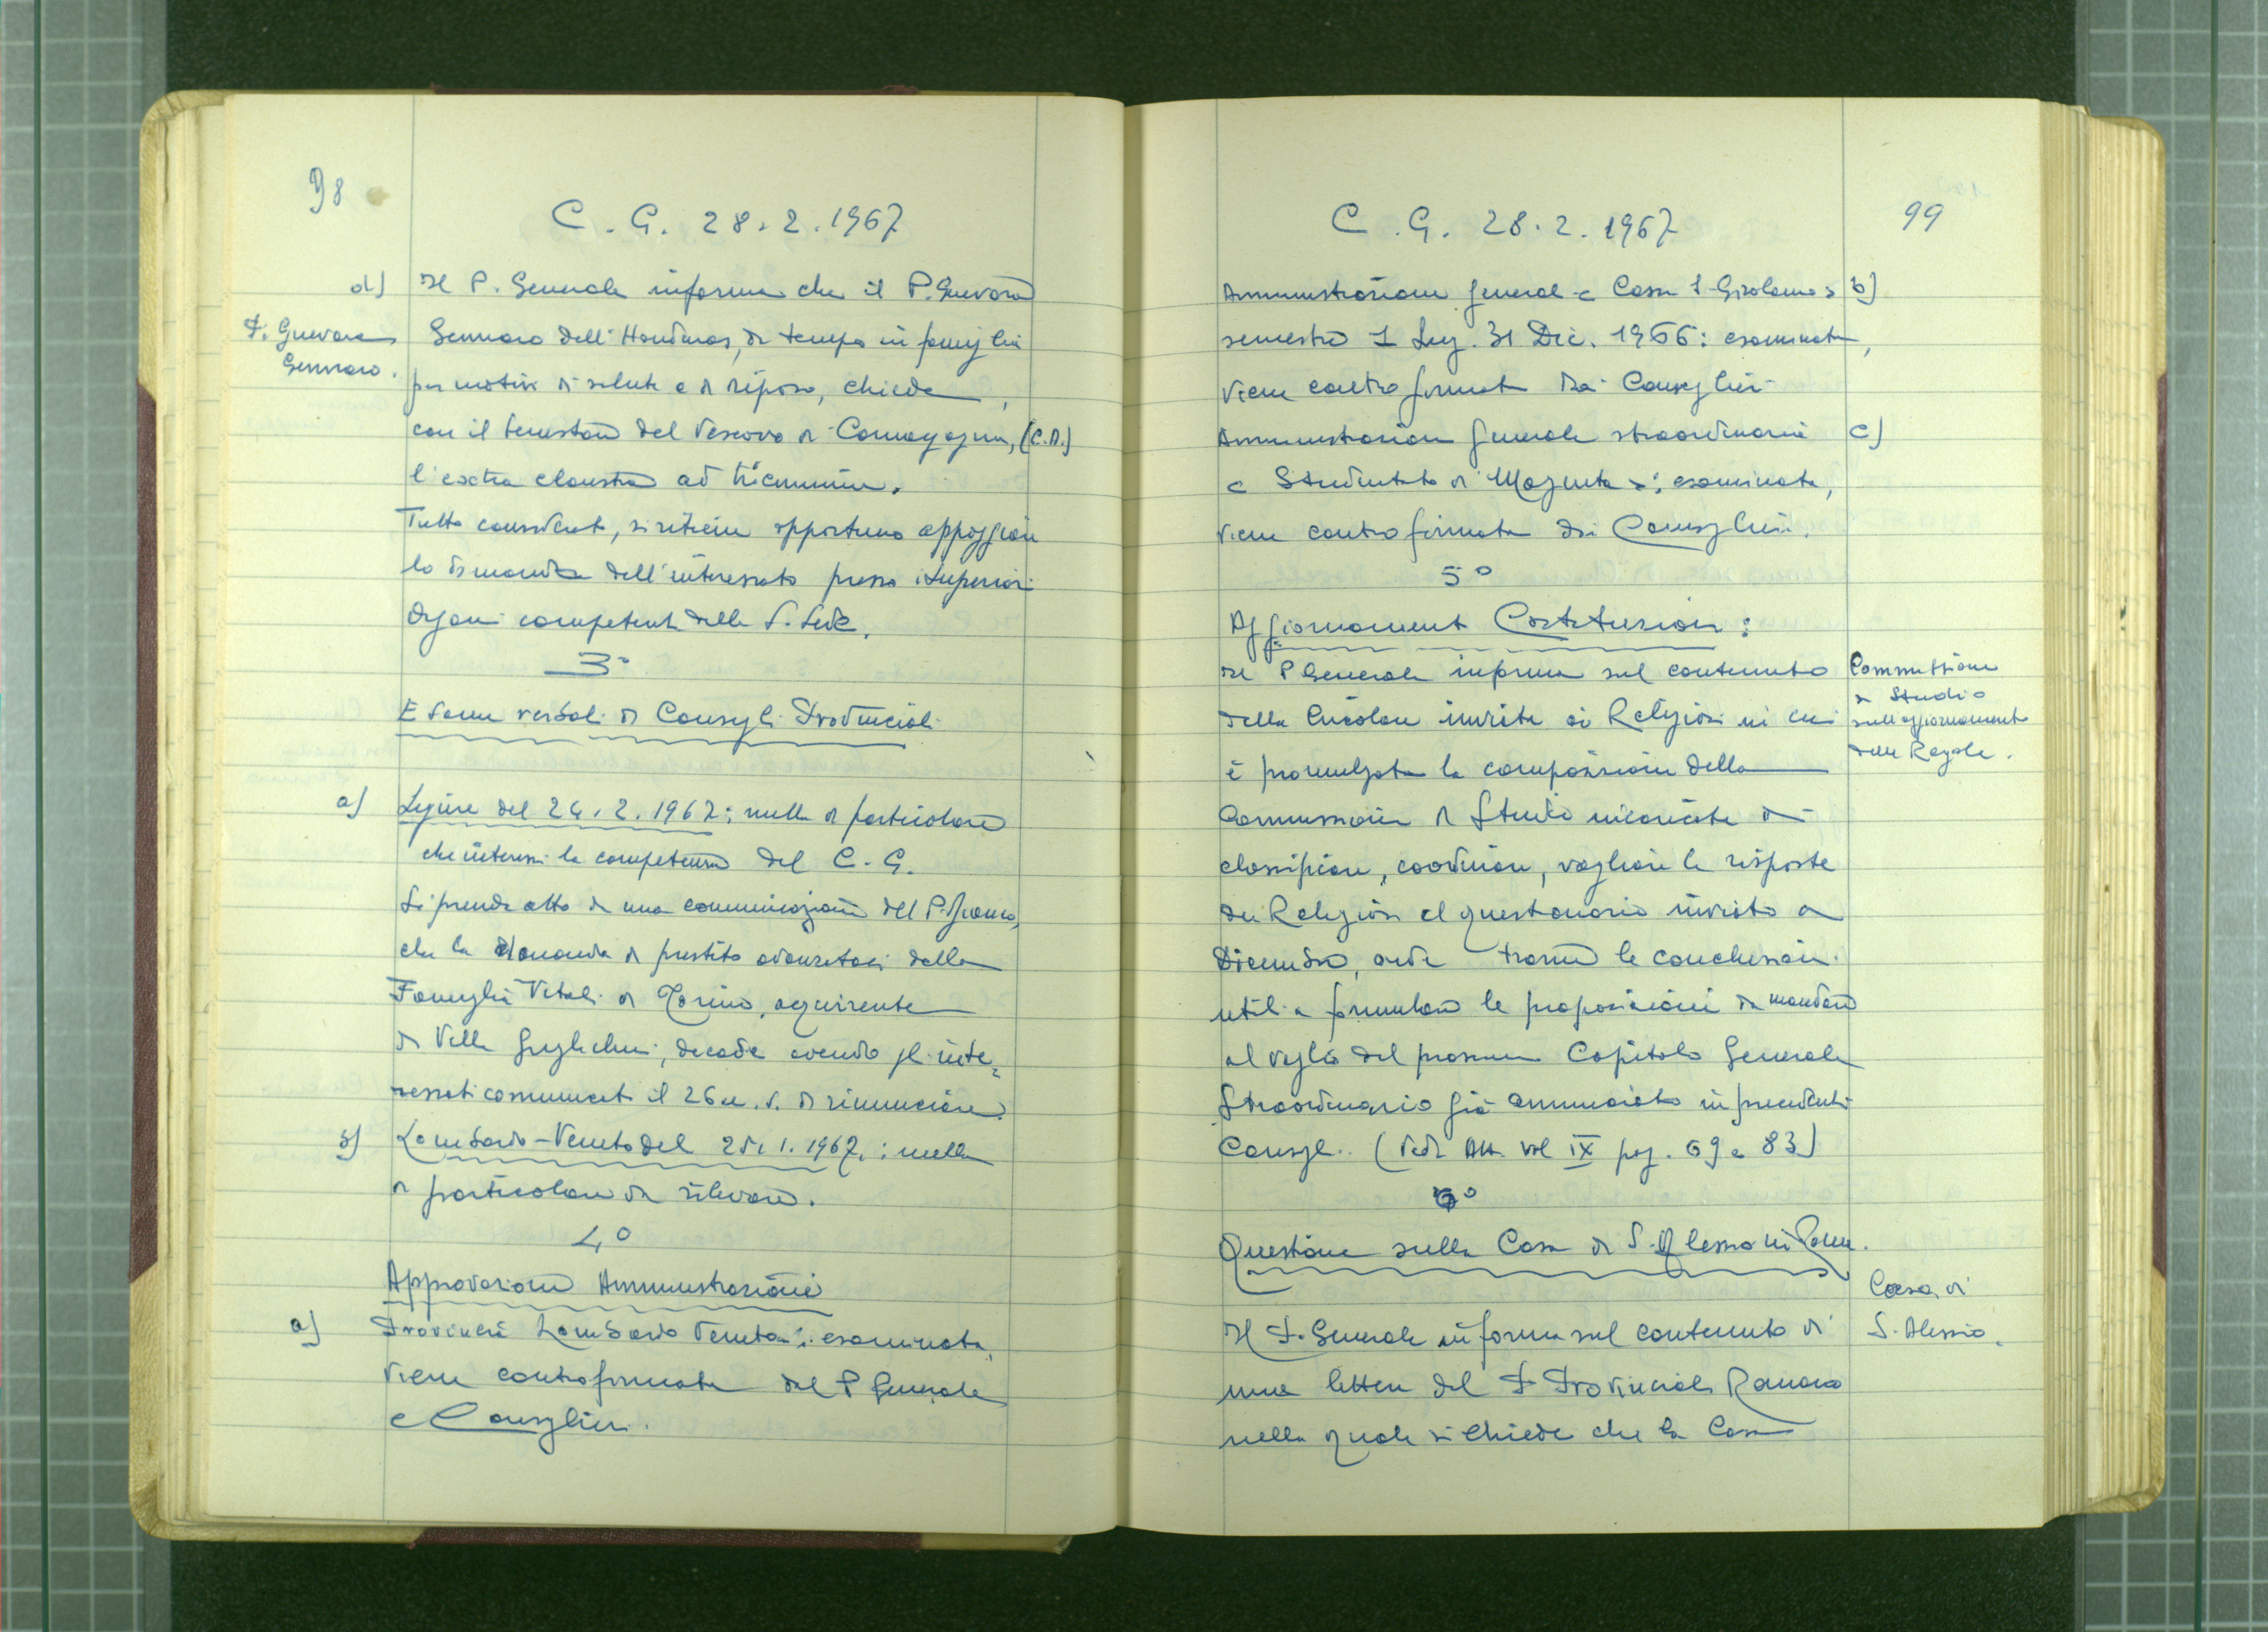 98
C. G. 28.2.1967
d) Il P. Generale informa che il P. Guevara
P. Guevara Gennaro.
Gennaro dell'Honduras, da tempo in famiglia
per motivi di salute e di riposo, chiede,
con il benestare del Vescovo di Comayagua, (C.A.)
l'extra claustra ad triennium.
Tutto considerato, si ritiene opportuno appoggiare
la domanda dell'interessato presso i Superiori
Organi competenti della S. Sede.
3°
Esame verbali di Consigli Provinciali
a) Ligure del 24.2.1967: nulla di particolare
che interessi la competenza del C. G.
Si prende atto di una comunicazione del P.
che la domanda di prestito avanzataci dalla
Famiglia Vitali di Torino, acquirente
di Villa Guglielmi, decade avendo gli inte=
ressati comunicato il 26 u. s. di rinunciare.
b) Lombardo-Veneto del 25.1.1967: nulla
di particolare da rilevare.
4°
Approvazione Amministrazioni
a) Provincia Lombardo Veneta: esaminata,
viene controfirmata dal P. Generale
e Consiglieri.
99
C. G. 28.2.1967
Amministrazione general « Casa S. Girolamo » b)
semestre 1 Lug. 31 Dic. 1966: esaminata,
viene controfirmata dai Consiglieri
Amministrazione generale straordinaria c)
« Studentato di Magenta »: esaminata,
viene controfirmata dai Consiglieri.
5°
Aggiornamento Costituzioni:
Il P. Generale informa sul contenuto
Commissione
di Studio
sull'aggiornamento
delle Regole.
della Circolare inviata ai Religiosi in cui
è promulgata la composizione della
Commissione di Studio incaricata di
classificare, coordinare, vagliare le risposte
dei Religiosi al questionario inviato a
Dicembre, onde trarne le conclusioni
utili a formulare le proposizioni da mandare
al vaglio del prossimo Capitolo Generale
Straordinario già annunciato in precedenti
Consigli. (Vedi Atti vol IX pag. 69 e 83)
6°
Questione sulla Casa di S. Alessio in Roma.
Casa di
S. Alessio.
Il P. Generale informa sul contenuto di
una lettera del P. Provinciale Romano
nella quale si chiede che la Casa